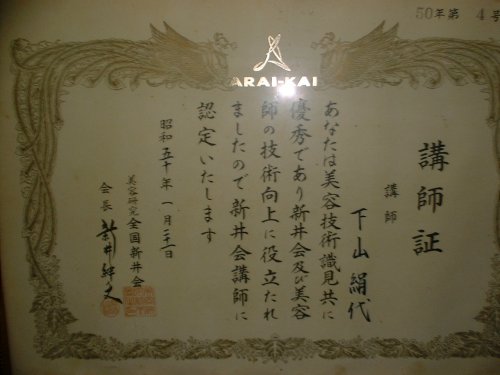 50年第 4号
ARAI-KAI
講師証
講師
下山絹代
あなたは美容技術識見共に
優秀であり新井会及び美容
師の技術向上に役立たれ
ましたので新井会講師に
認定いたします
昭和五十年一月二十一日
美容研究全国新井会
会長